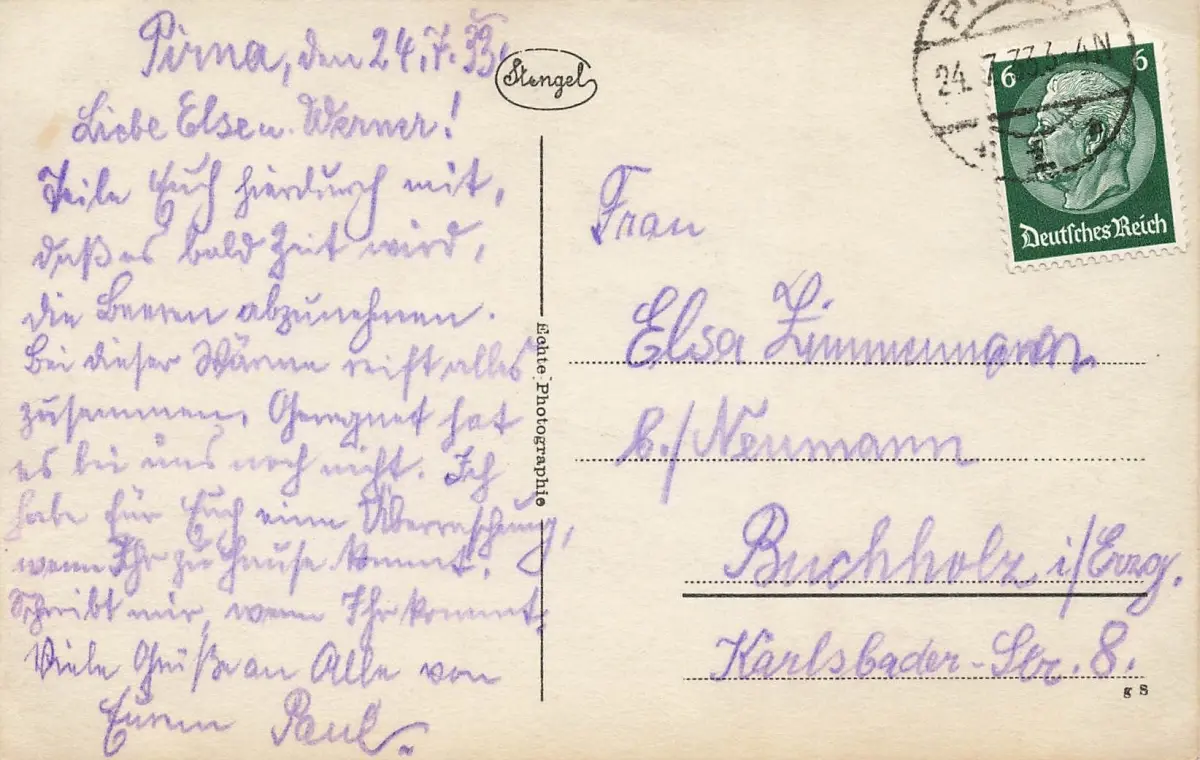 Pirna, den 24.7.33.
Liebe Else u. Werner!
Teile Euch hierdurch mit,
daß es bald Zeit wird,
die Beeren abzunehmen.
Bei dieser Wärme reift alles
zusammen. Geregnet hat
es bei uns noch nicht. Ich
habe für Euch eine Überraschung,
wenn Ihr zu Hause kommt.
Schreibt mir, wenn Ihr kommt.
Viele Grüße an Alle von
Eurem Paul.
Stengel
Echte Photographie
24. 7.33.3-4N
6 6
Deutsches Reich
Frau
Elsa Zimmermann
b./Neumann
Buchholz i/Erzg.
Karlsbader-Str. 8.
g S